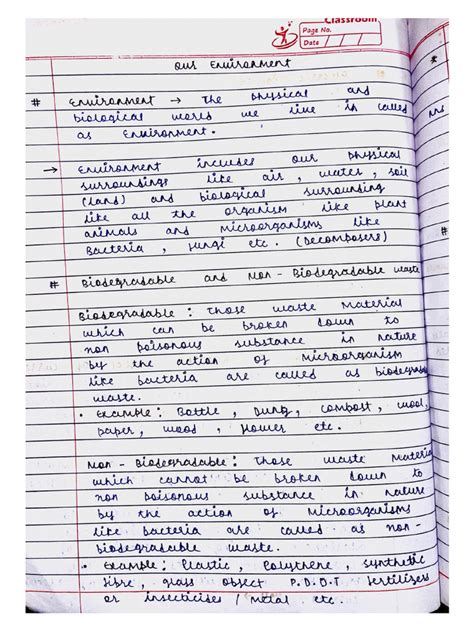 Classroom
Page No.
Date
Our Environment
# Environment → The physical and
biological world we live in called
as Environment.
→ Environment includes our physical
surroundings like air, water, soil
(land) and biological surrounding
like all the organism like plant
animals and microorganisms like
Bacteria, fungi etc. (Decomposers)
# Biodegradable and Non-Biodegradable waste
Biodegradable: Those waste material
which can be broken down to
non poisonous substance in nature
by the action of microorganism
like bacteria are called as biodegradable
waste.
• Example: Bottle, Dung, compost, wool,
paper, wood, flower etc.
Non-Biodegradable: Those waste Material
which cannot be broken down to
non poisonous substance in nature
by the action of microorganisms
like bacteria are called as non-
biodegradable waste.
• Example: Plastic, Polythene, synthetic
fibre, glass object P.D.D.T fertilisers
or insecticides / metal etc.